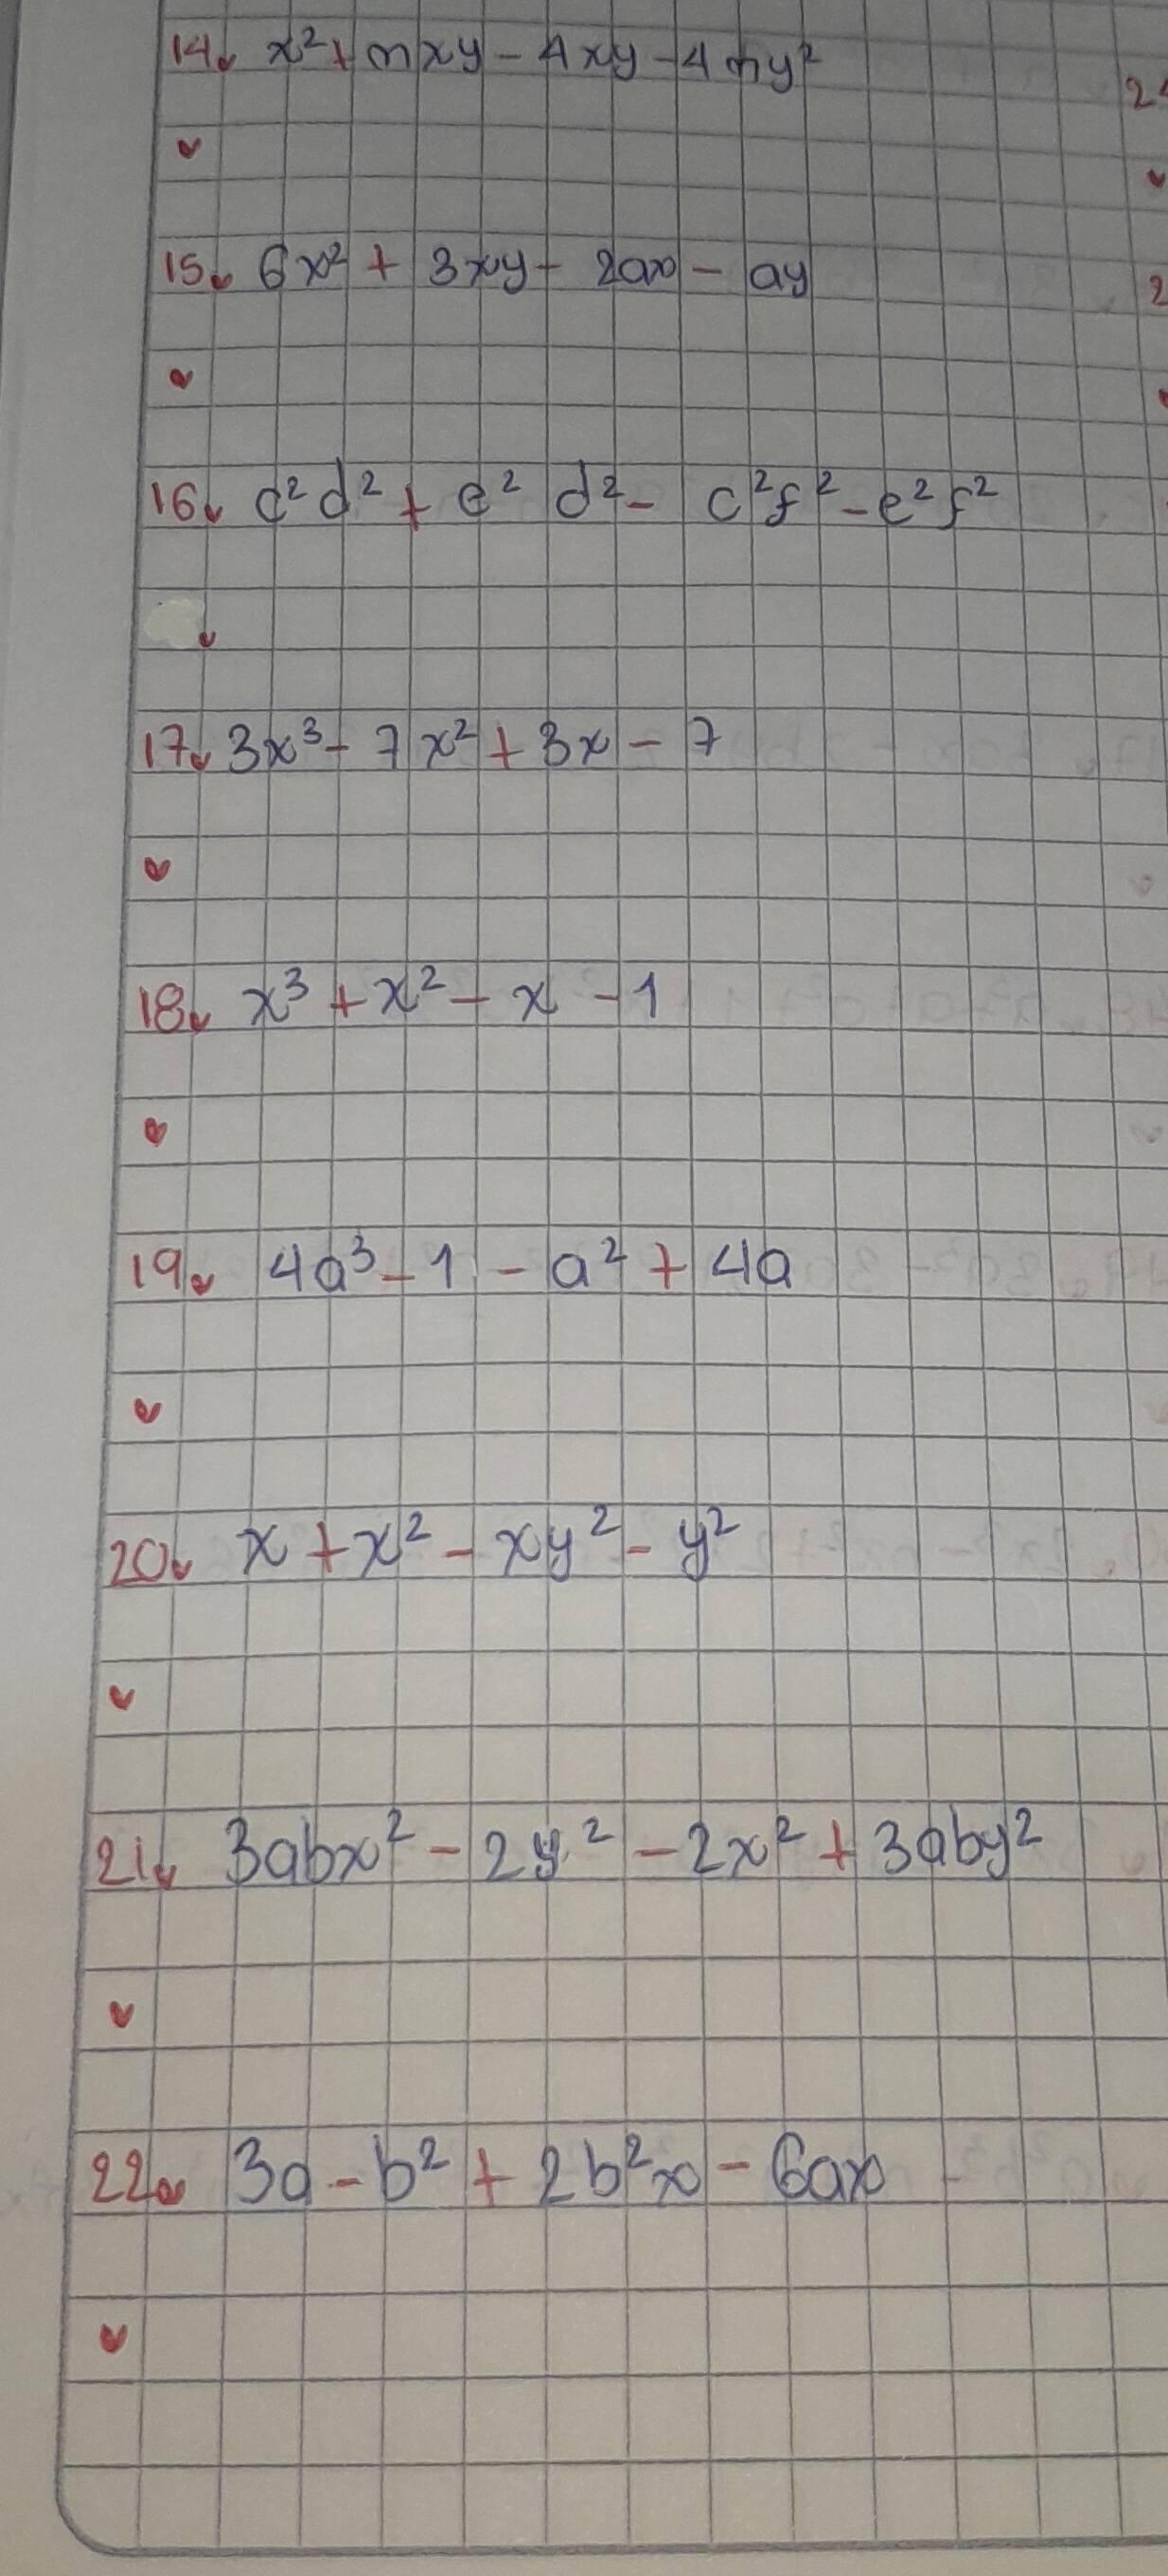 14. x² + nxy - 4xy - 4ny²
15. 6x² + 3xy - 2ax - ay
16. c²d² + e²d² - c²f² - e²f²
17. 3x³ - 7x² + 3x - 7
18. x³ + x² - x - 1
19. 4a³ - 1 - a² + 4a
20. x + x² - xy² - y²
21. 3abx² - 2y² - 2x² + 3aby²
22. 3a - b² + 2b²x - 6ax